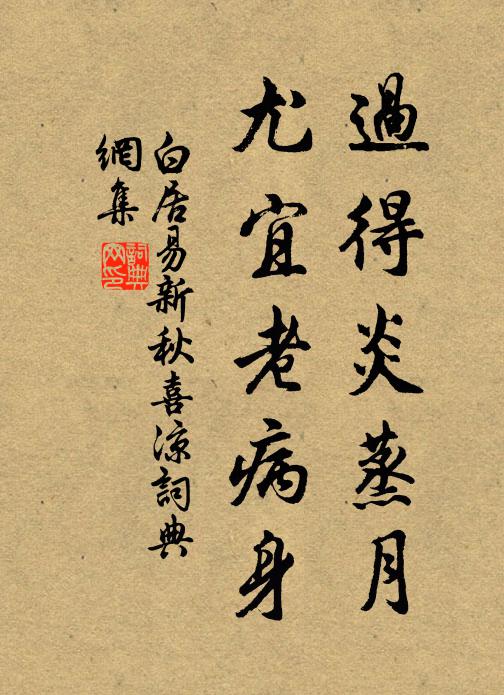 過得炎蒸月
尤宜老病身
白居易新秋喜涼詞典
網集
詞典
网印